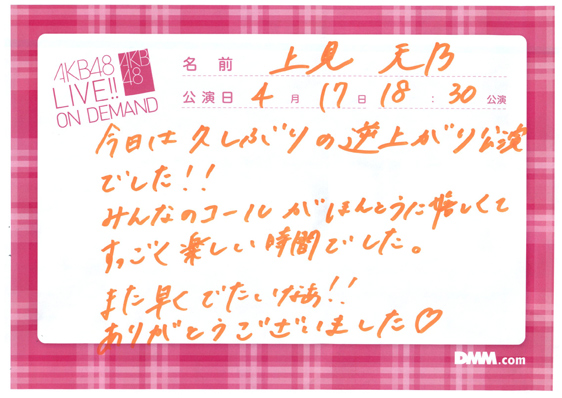 AKB48
LIVE!!
ON DEMAND
AKB
48
名前 上見 天乃
公演日 4月17日 18:30公演
今日は久しぶりの逆上がり公演
でした!!
みんなのコールがほんとうに嬉しくて
すっごく楽しい時間でした。
また早くでたいなぁ!!
ありがとうございました♡
DMM.com